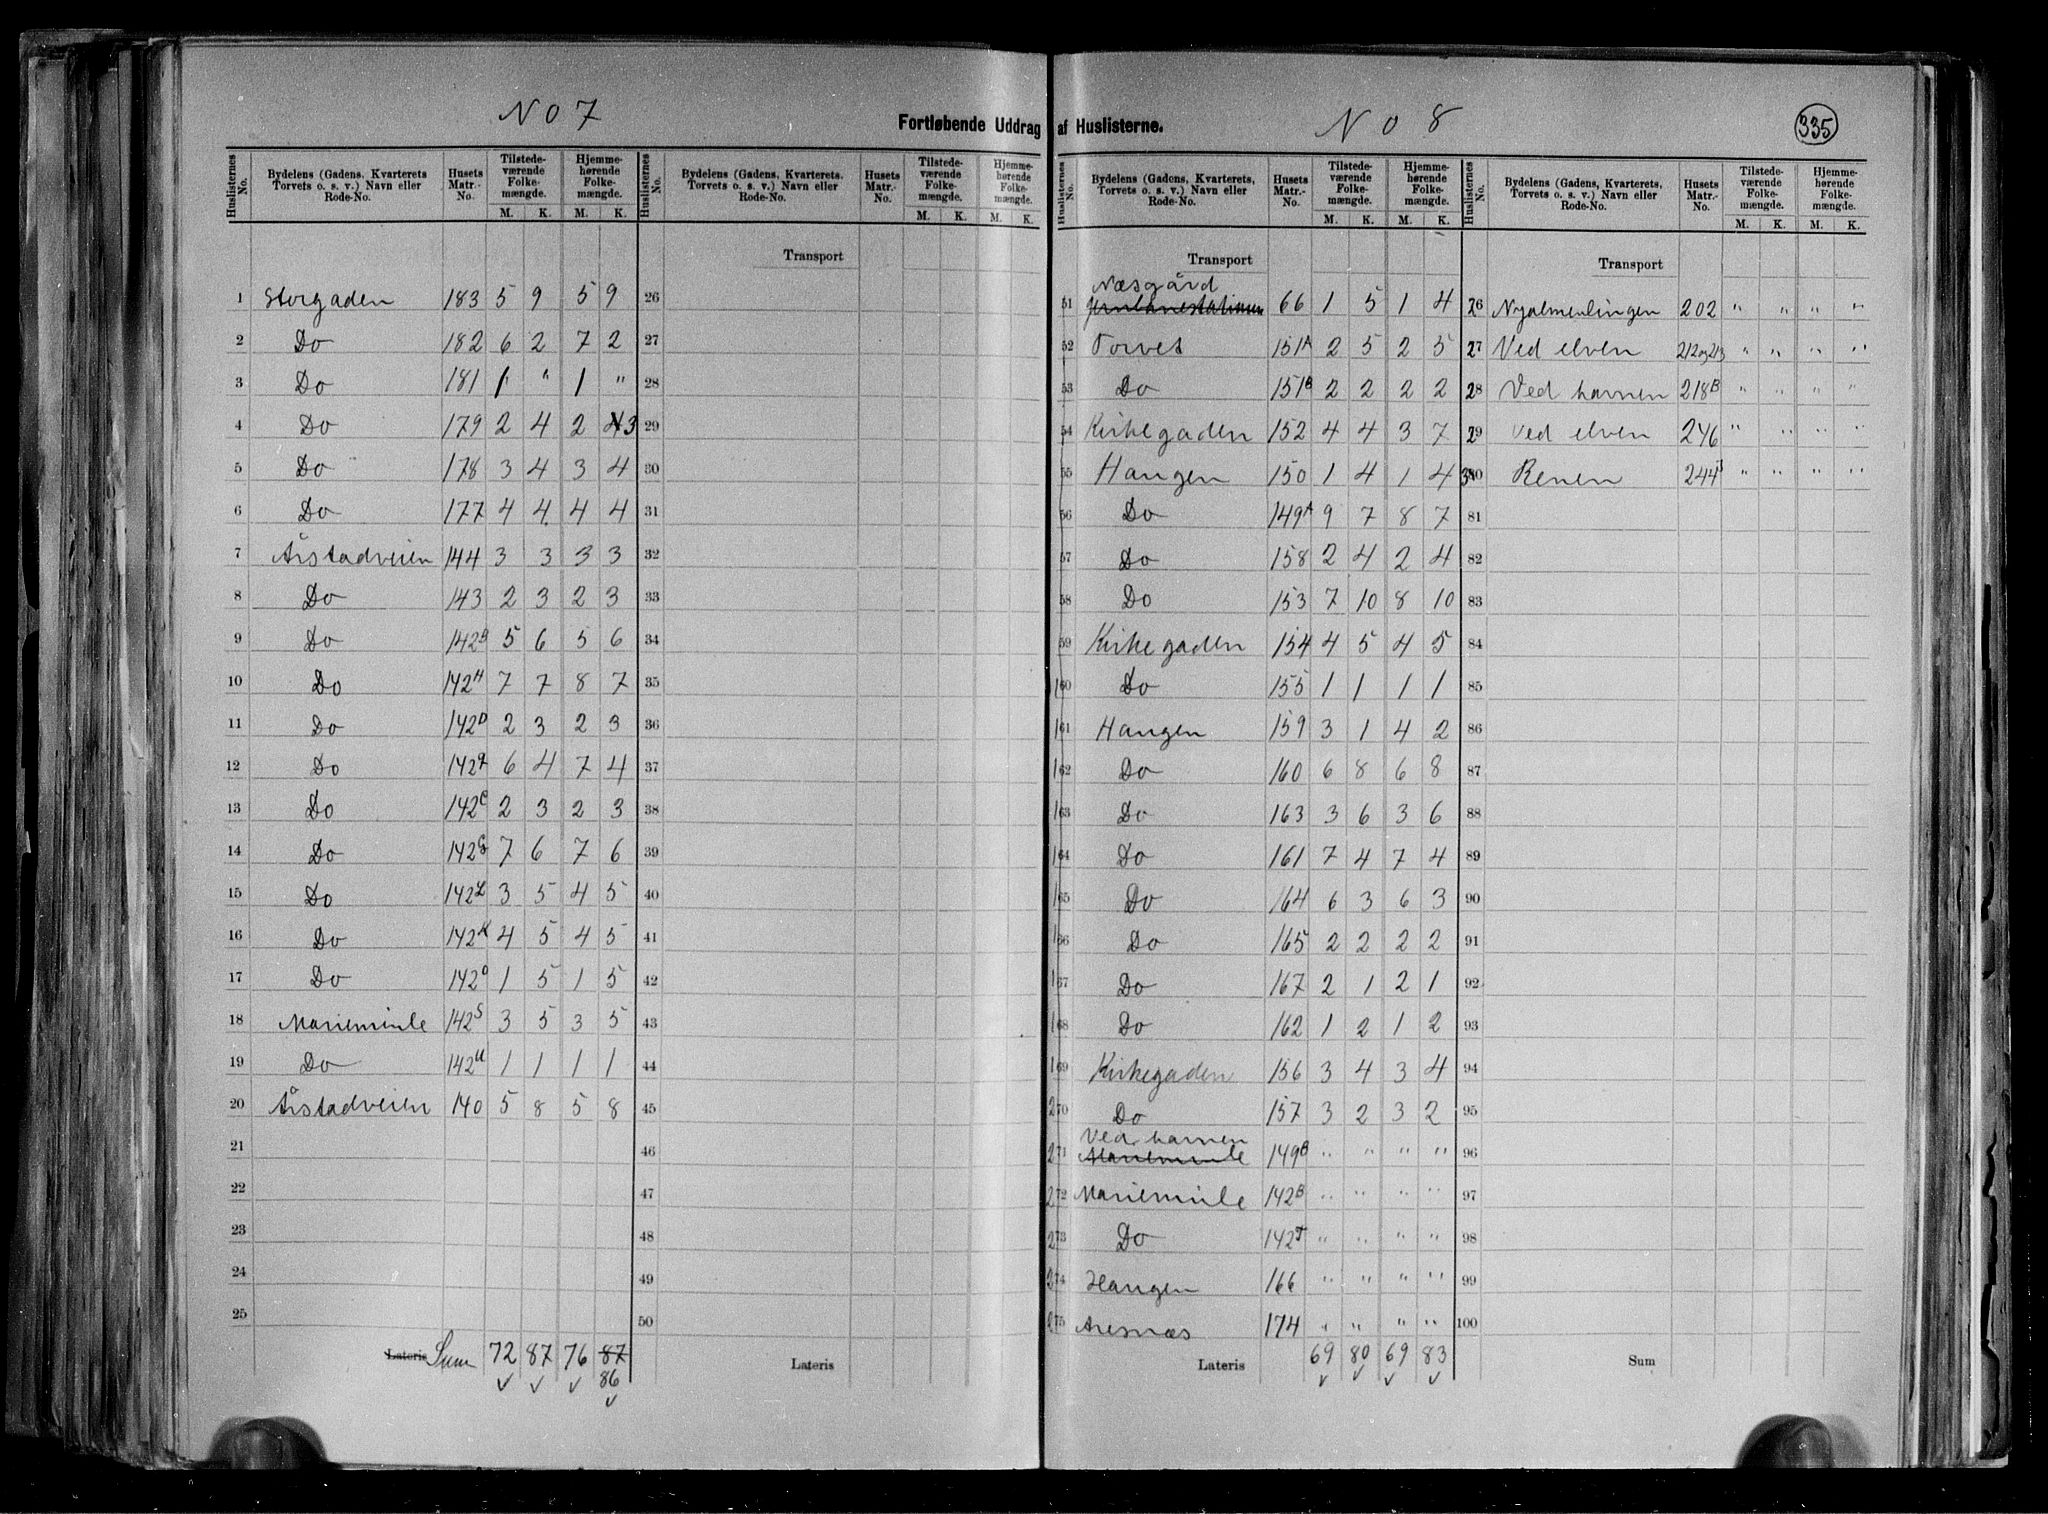 No 7
Fortløbende Uddrag af Huslisterne.
No 8
335
Huslisternes No. Bydelens (Gadens, Kvarterets, Torvets o. s. v.) Navn eller Rode-No. Husets Matr.-No. Tilstedeværende Folkemængde. M. K. Hjemmehørende Folkemængde. M. K.
Huslisternes No. Bydelens (Gadens, Kvarterets, Torvets o. s. v.) Navn eller Rode-No. Husets Matr.-No. Tilstedeværende Folkemængde. M. K. Hjemmehørende Folkemængde. M. K.
Transport
1 Storgaden 183 5 9 5 9
2 Do 182 6 2 7 2
3 Do 181 1 " 1 "
4 Do 179 2 4 2 4 3
5 Do 178 3 4 3 4
6 Do 177 4 4 4 4
7 Årstadveien 144 3 3 3 3
8 Do 143 2 3 2 3
9 Do 142B 5 6 5 6
10 Do 142H 7 7 8 7
11 Do 142D 2 3 2 3
12 Do 142 6 4 7 4
13 Do 142C 2 3 2 3
14 Do 142G 7 6 7 6
15 Do 142L 3 5 4 5
16 Do 142K 4 5 4 5
17 Do 142O 1 5 1 5
18 Marieminde 142S 3 5 3 5
19 Do 142U 1 1 1 1
20 Årstadveien 140 5 8 5 8
21
22
23
24
25
Lateris Sum 72 87 76 87
86
26
27
28
29
30
31
32
33
34
35
36
37
38
39
40
41
42
43
44
45
46
47
48
49
50
Lateris
Huslisternes No. Bydelens (Gadens, Kvarterets, Torvets o. s. v.) Navn eller Rode-No. Husets Matr.-No. Tilstedeværende Folkemængde. M. K. Hjemmehørende Folkemængde. M. K.
Huslisternes No. Bydelens (Gadens, Kvarterets, Torvets o. s. v.) Navn eller Rode-No. Husets Matr.-No. Tilstedeværende Folkemængde. M. K. Hjemmehørende Folkemængde. M. K.
Transport
Næsgård
51 Jernbanestationen 66 1 5 1 4
52 Torvet 151A 2 5 2 5
53 Do 151B 2 2 2 2
54 Kirkegaden 152 4 4 3 7
55 Haugen 150 1 4 1 4
56 Do 149A 9 7 8 7
57 Do 158 2 4 2 4
58 Do 153 7 10 8 10
59 Kirkegaden 154 4 5 4 5
160 Do 155 1 1 1 1
161 Haugen 159 3 1 4 2
162 Do 160 6 8 6 8
163 Do 163 3 6 3 6
164 Do 161 7 4 7 4
165 Do 164 6 3 6 3
166 Do 165 2 2 2 2
167 Do 167 2 1 2 1
168 Do 162 1 2 1 2
169 Kirkegaden 156 3 4 3 4
270 Do 157 3 2 3 2
Ved havnen
271 Marieminde 149B " " " "
272 Marieminde 142B " " " "
273 Do 142T " " " "
274 Haugen 166 " " " "
275 Aresnæs 174 " " " "
Lateris 69 80 69 83
Transport
26 Nyalmenlingen 202 " " " "
27 Ved elven 212og213 " " " "
28 Ved havnen 218B " " " "
29 Ved elven 246 " " " "
30 Renen 244 " " " "
81
82
83
84
85
86
87
88
89
90
91
92
93
94
95
96
97
98
99
100
Sum